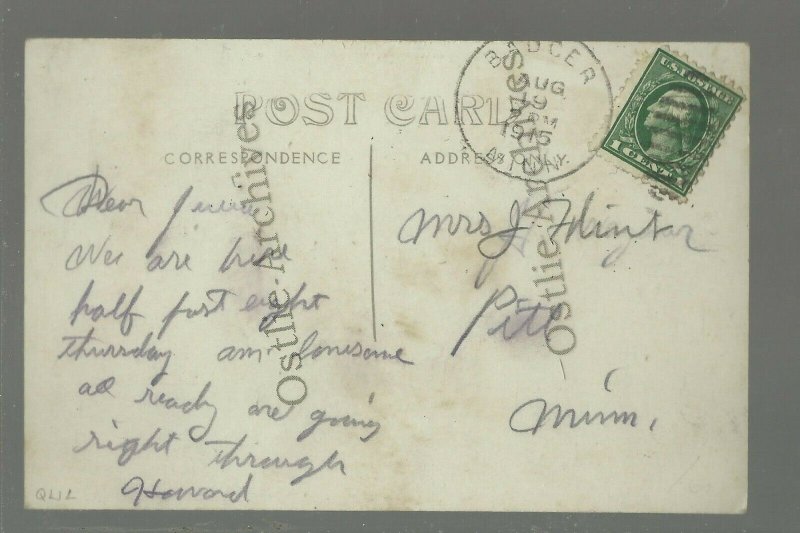 POST CARD
CORRESPONDENCE
ADDRESS ONLY
BADGER
AUG
9
PM
1915
MINN.
U.S. POSTAGE
1 CENT 1
Dear
We are here
half past eight
thursday am lonesome
all ready are going
right through
Howard
Mrs J Flinter
Pitt
Minn.
QWL
Ostlie Archives
Ostlie Archives